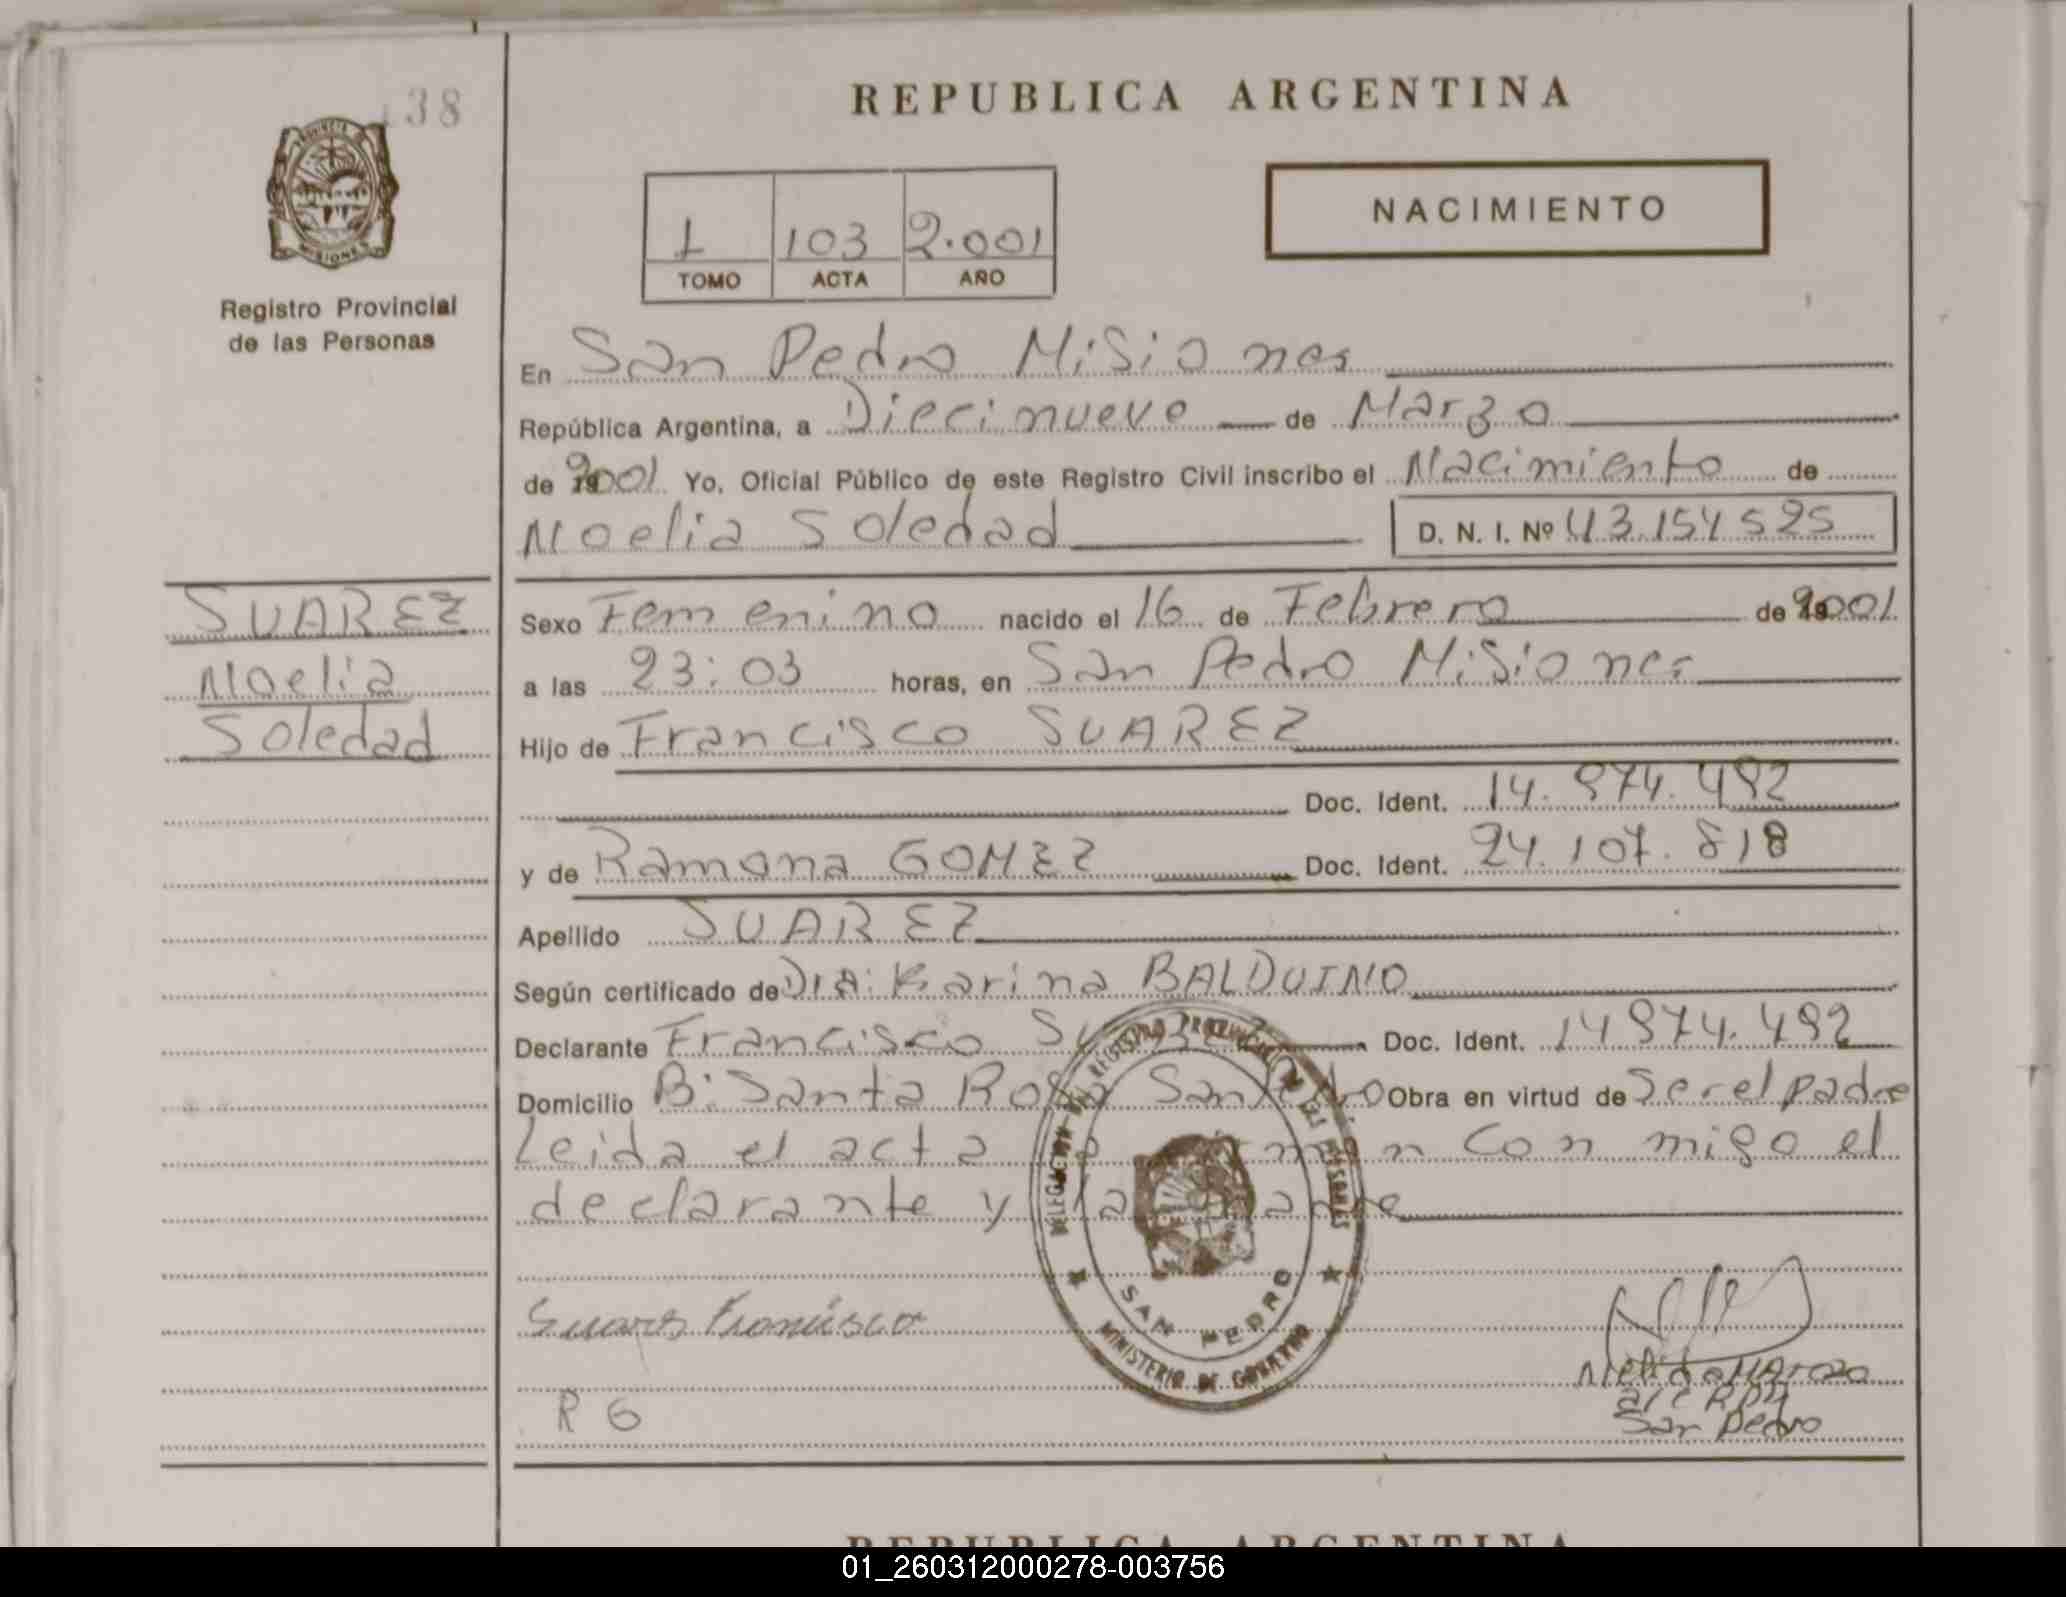 138
REPUBLICA ARGENTINA
PROVINCIA DE
MISIONES
Registro Provincial
de las Personas
1 103 2.001
TOMO ACTA AÑO
NACIMIENTO
En San Pedro Misiones
República Argentina, a Diecinueve de Marzo
de 2001 Yo, Oficial Público de este Registro Civil inscribo el Nacimiento de
Noelia Soledad D. N. I. Nº 43.154525
SUAREZ
Noelia
Soledad
Sexo Femenino nacido el 16 de Febrero de 2001
a las 23:03 horas, en San Pedro Misiones
Hijo de Francisco SUAREZ
Doc. Ident. 14.974.492
y de Ramona GOMEZ Doc. Ident. 24.107.818
Apellido SUAREZ
Según certificado de Dra: Karina BALDUINO
Declarante Francisco Doc. Ident. 14974.492
Domicilio B: Santa Rosa San Pedro Obra en virtud de Ser el padre
Leida el acta con migo el
declarante y la madre
DELEGACION DEL REGISTRO PROVINCIAL DE LAS PERSONAS
SAN PEDRO
MINISTERIO DE GOBIERNO
Suares Francisco
R G
San Pedro
REPUBLICA ARGENTINA
01_260312000278-003756